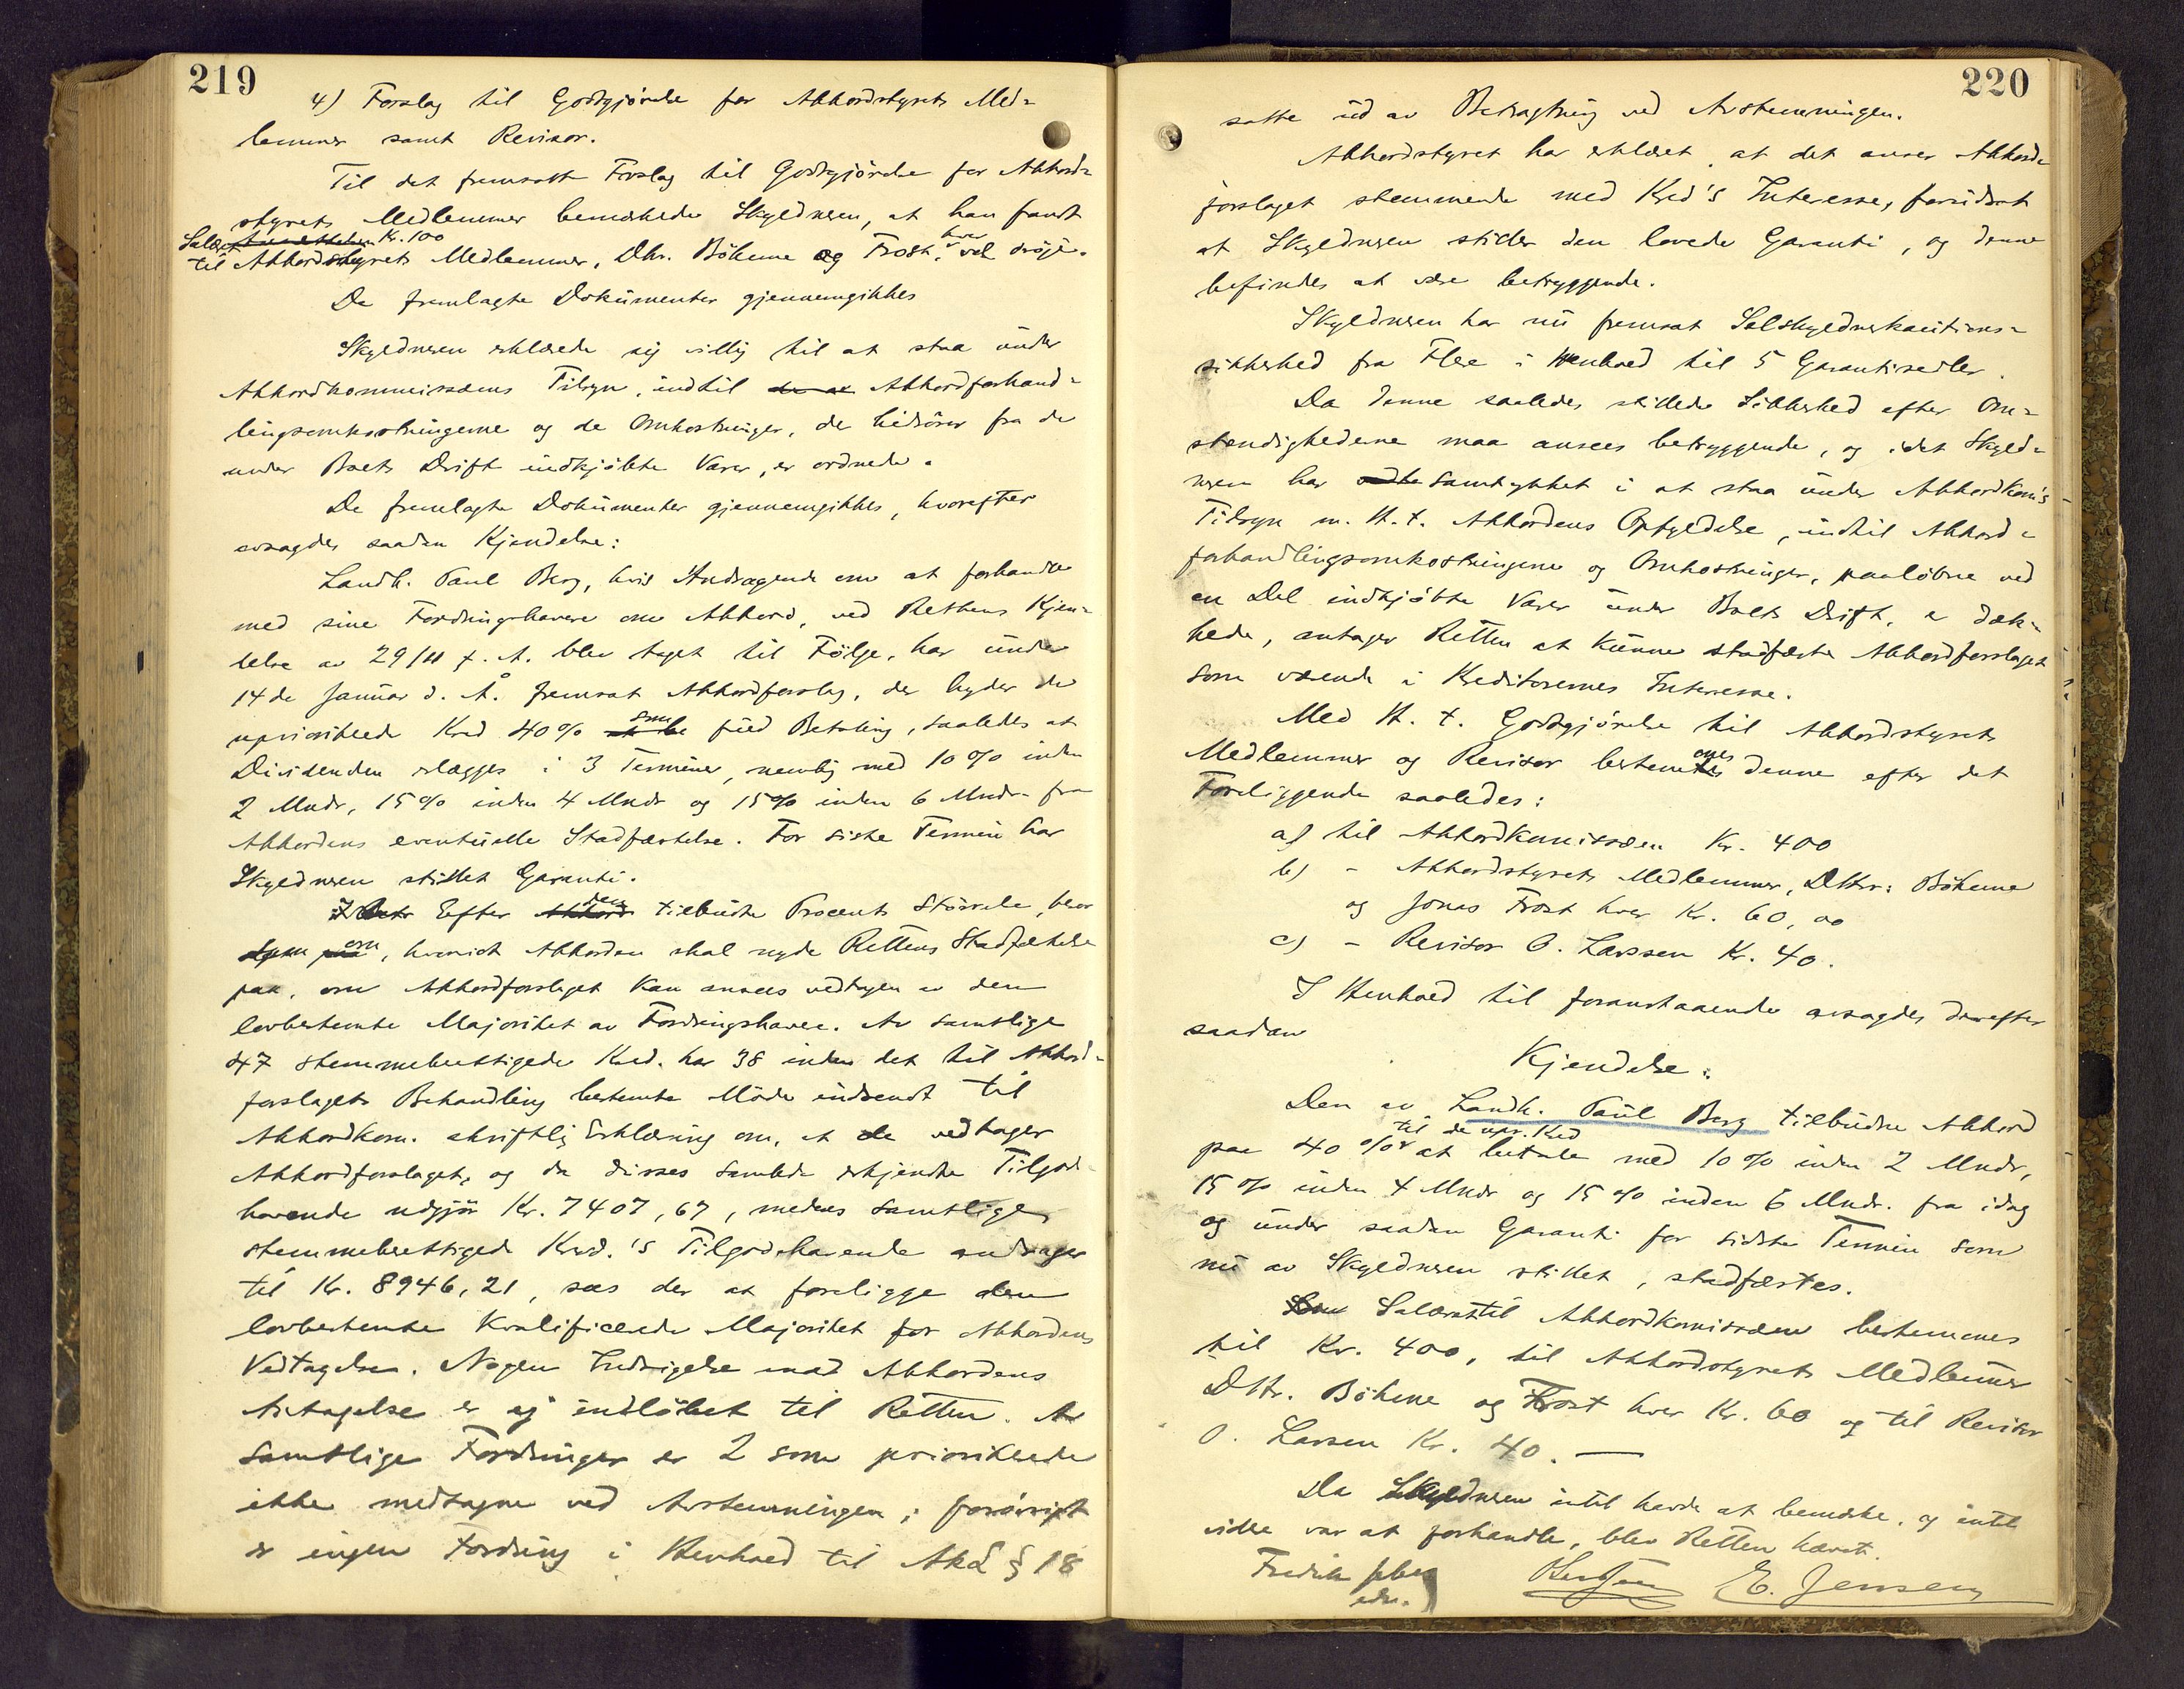 219
4) Forslag til Godtgjörelse for Akkordstyrets Med=
lemmer samt Revisor.
Til det fremsatte Forslag til Godtgjörelse for Akkord=
styrets Medlemmer bemerkede Skyldneren, at han fandt
Salær Kr. 100 hver
til Akkordstyrets Medlemmer, Dhr. Böhme og Frost, vel dröje.
De fremlagte Dokumenter gjennemgikkes
Skyldneren erklærede sig villig til at staa under
Akkordkommissærens Tilsyn, indtil Akkordforhand=
lingsomkostningerne og de Omkostninger, de hidrörer fra de
under Boets Drift indkjöbte Varer, er ordnede.
De fremlagte Dokumenter gjennemgikkes, hvorefter
avsagdes saadan Kjendelse:
Landh. Paul Berg, hvis Andragende om at forhandle
med sine Fordringshavere om Akkord, ved Rettens Kjen=
delse av 29/11 f. A. blev taget til Fölge, har under
14de Januar d. Å. fremsat Akkordforslag, der byder de
uprioriterede Kred 40% som fuld Betaling, saaledes at
Dividenden erlægges i 3 Terminer, nemlig med 10% inden
2 Mndr, 15% inden 4 Mndr og 15% inden 6 Mndr. fra
Akkordens eventuelle Stadfæstelse. For siste Termin har
Skyldneren stillet Garanti.
Efter den tilbudte Procents Störrelse, beror
om, hvorvidt Akkorden skal nyde Rettens Stadfæstelse
paa, om Akkordforslaget kan ansees vedtagen av den
lovbestemte Majoritet av Fordringshavere. Av samtlige
47 stemmeberettigede Kred. har 38 inden det til Akkord=
forslagets Behandling bestemte Möde indsendt til
Akkordkom. skriftlig Erklæring om, at de vedtager
Akkordforslaget, og da disses samlede erkjendte Tilgode=
havende udgjör Kr. 7407,67, medens samtlige
stemmeberettigede Kred.'s Tilgodehavende andrager
til Kr. 8946,21, sees der at foreligge den
lovbestemte kvalificerede Majoritet for Akkordens
Vedtagelse. Nogen Indsigelse mod Akkordens
Antagelse er ej indlöbet til Retten. Av
samtlige Fordringer er 2 som prioriterede
ikke medtagne ved Avstemningen; forövrigt
er ingen Fordring i Henhold til AkL § 18
220
satte ud av Betragtning ved Avstemningen.
Akkordstyret har erklæret, at det anser Akkord=
forslaget stemmende med Kred's Interesse, forudsat
at Skyldneren stiller den lovede Garanti, og denne
befindes at være betryggende.
Skyldneren har nu fremsat Selvskyldnerkautions=
sikkerhed fra Flere i Henhold til 5 Garantisedler.
Da denne saaledes stillede Sikkerhed efter Om=
stændighederne maa ansees betryggende, og idet Skyld=
neren har samtykket i at staa under Akkordkom's
Tilsyn m. H. t. Akkordens Opfyldelse, indtil Akkord=
forhandlingsomkostningerne og Omkostninger, paaløbne ved
en Del indkjöbte Varer under Boets Drift, er dæk=
kede, antager Retten at kunne stadfæste Akkordforslaget
som værende i Kreditorernes Interesse.
Med H. t. Godtgjörelse til Akkordstyrets
Medlemmer og Revisor bestemmes denne efter det
Foreliggende saaledes:
a) til Akkordkomissæren Kr. 400
b) - Akkordstyrets Medlemmer, DHrr: Böhme
og Jonas Frost hver Kr. 60,00
c) - Revisor O. Larssen Kr. 40.
I Henhold til foranstaaende avsagdes derefter
saadan
Kjendelse:
Den av Landh. Paul Berg tilbudne Akkord
til de upr. Kred
paa 40% at betale med 10% inden 2 Mndr,
15% inden 4 Mndr og 15% inden 6 Mndr. fra idag
og under saadan Garanti for sidste Termin som
nu av Skyldneren stillet, stadfæstes.
Salæret til Akkordkomissæren bestemmes
til Kr. 400, til Akkordstyrets Medlemmer
DHr. Böhme og Frost hver Kr. 60 og til Revisor
O. Larsen Kr. 40. —
Da Skyldneren intet havde at bemerke, og intet
videre var at forhandle, blev Retten hævet.
Fredrik
edsv. E. Jensen